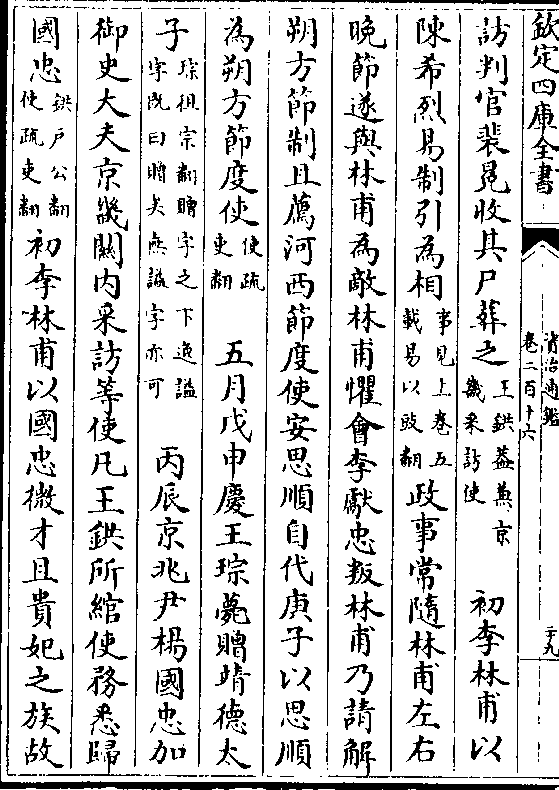 欽定四庫全書
資治通鑑
卷二百十六
二十九
訪判官裴冕收其尸葬之王鉷蓋兼京
畿采訪使初李林甫以
陳希烈易制引為相事見上卷五
載易以豉翻政事常隨林甫左右
晚節遂與林甫為敵林甫懼會李獻忠叛林甫乃請解
朔方節制且薦河西節度使安思順自代庚子以思順
為朔方節度使使疏
吏翻五月戊申慶王琮薨贈靖德太
子琮祖宗翻贈字之下逸諡
字既曰贈矣無諡字亦可丙辰京兆尹楊國忠加
御史大夫京畿關內采訪等使凡王鉷所綰使務悉歸
國忠鉷户公翻
使疏吏翻初李林甫以國忠微才且貴妃之族故